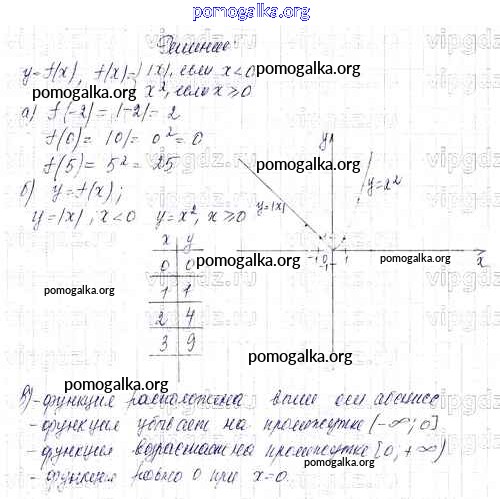 pomogalka.org
Решение
y=f(x), f(x)={|x|, если x<0
pomogalka.org
x², если x⩾0
pomogalka.org
а) f(-2)=|-2|=2
f(0)=|0|=0²=0
f(5)=5²=25
pomogalka.org
б) y=f(x);
y=|x|, x<0 y=x², x⩾0
x y
0 0
1 1
2 4
3 9
y
y=|x|
y=x²
-1 0 1
-1
x
pomogalka.org
pomogalka.org
pomogalka.org
pomogalka.org
pomogalka.org
в) - функция расположена выше оси абсцисс
- функция убывает на промежутке (-∞; 0]
- функция возрастает на промежутке [0; +∞)
- функция равна 0 при x=0.
pomogalka.org
vipgdz.ru